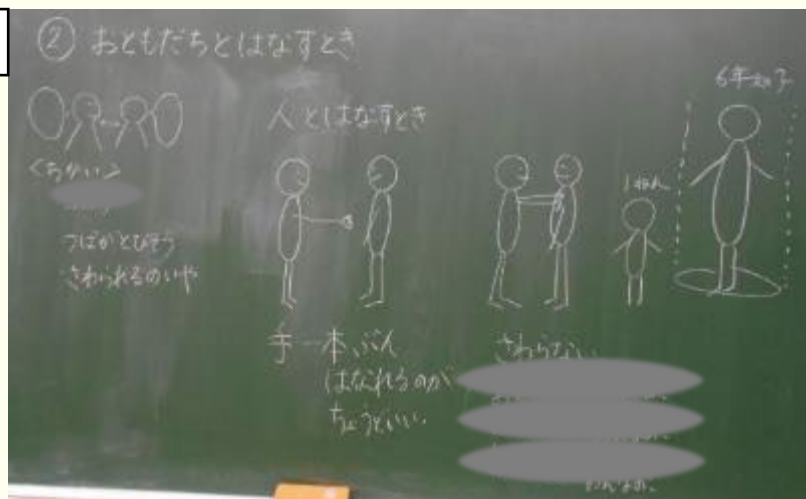 ② おともだちとはなすとき
＜ちかい＞
つばがとびそう
さわられるのいや
人とはなすとき
手一本ぶん
はなれるのが
ちょうどいい。
さわらない
1ねん
6年女子